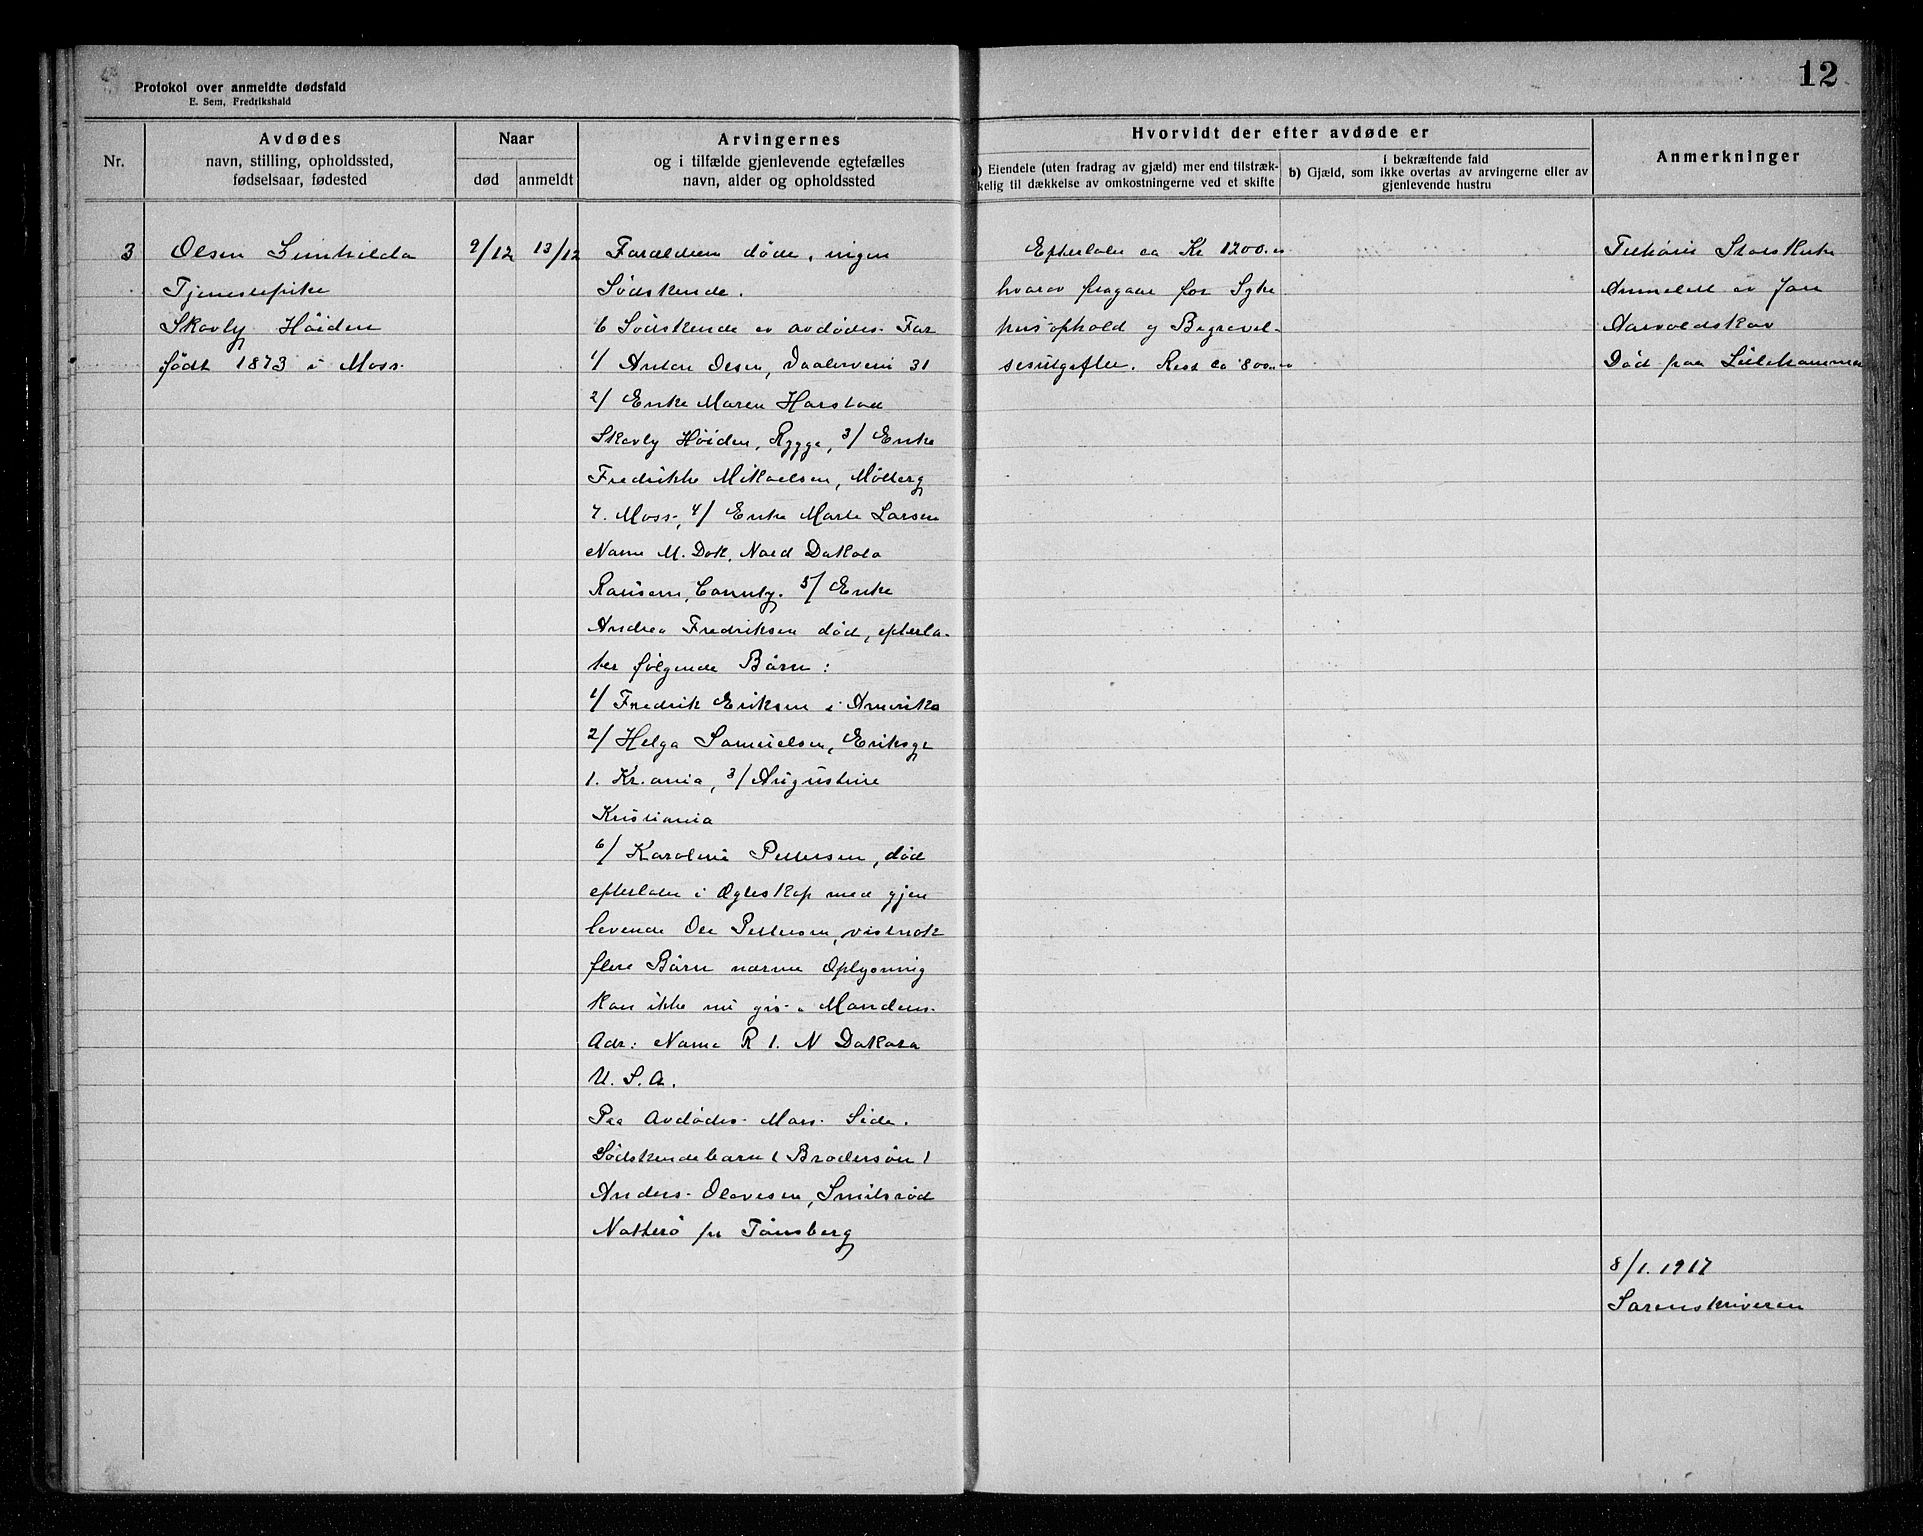 Protokol over anmeldte dødsfald
E. Sem, Fredrikshald
12
Nr.
Avdødes
navn, stilling, opholdssted,
fødselsaar, fødested
Naar
død
anmeldt
Arvingernes
og i tilfælde gjenlevende egtefælles
navn, alder og opholdssted
Hvorvidt der efter avdøde er
a) Eiendele (uten fradrag av gjæld) mer end tilstræk-
kelig til dækkelse av omkostningerne ved et skifte
I bekræftende fald
b) Gjæld, som ikke overtas av arvingerne eller av
gjenlevende hustru
Anmerkninger
3
Olsen Gunhilda
Tjenestepike
Skovly Höiden
født 1873 i Moss
9/12
13/12
Forældrene døde, ingen
Sødskende.
6 Sødskende av avdødes Far
1/ Anton Olsen, Vaalerveien 31
2/ Enke Maren Harstad
Skovly Höiden, Rygge, 3/ Enke
Fredrikke Mikaelsen, Møllerg
7. Moss, 4/ Enke Marte Larsen
Name M. Dok, Nord Dakota
County. 5/ Enke
Andrea Fredriksen død, efterla-
ter følgende Børn:
1/ Fredrik Eriksen i Amerika
2/ Helga Samuelsen, Eriksgt
1. Kr.ania, 3/ Augustine
Kristiania
6/ Karoline Pettersen, død
efterlater i Ægteskap med gjen
levende Ole Pettersen, vistnok
flere Børn nærme Oplysning
kan ikke nu gis. Mandens
Adr: Name R 1. N Dakota
U. S. A.
Paa Avdødes Mors Side.
Sødskendebarn (Brodersøn)
Anders Olavesen, Smidsrød
Nøtterø pr Tønsberg
Efterlater ca Kr 1200.00
hvorav fragaar for Syke
husophold og Begravel-
sesutgifter. Rest ca 800.00
Anmeldt av Jon
Aarvoldskov
Død paa Lillehammer
8/1. 1917
Sorenskriveren